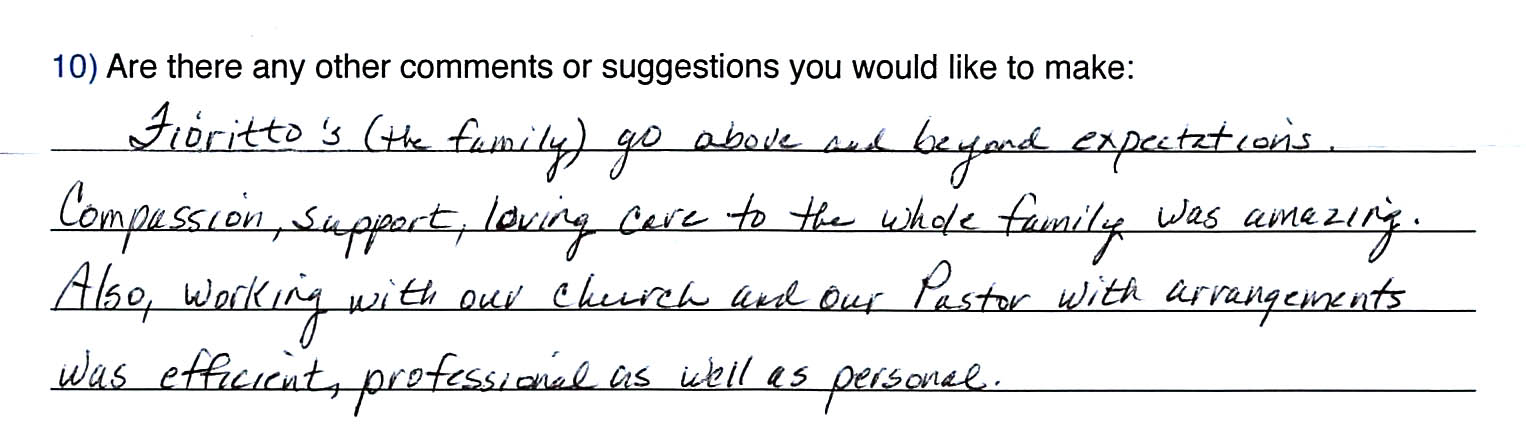 10) Are there any other comments or suggestions you would like to make:
Fioritto's (the family) go above and beyond expectations.
Compassion, support, loving care to the whole family was amazing.
Also, working with our church and our Pastor with arrangements
was efficient, professional as well as personal.